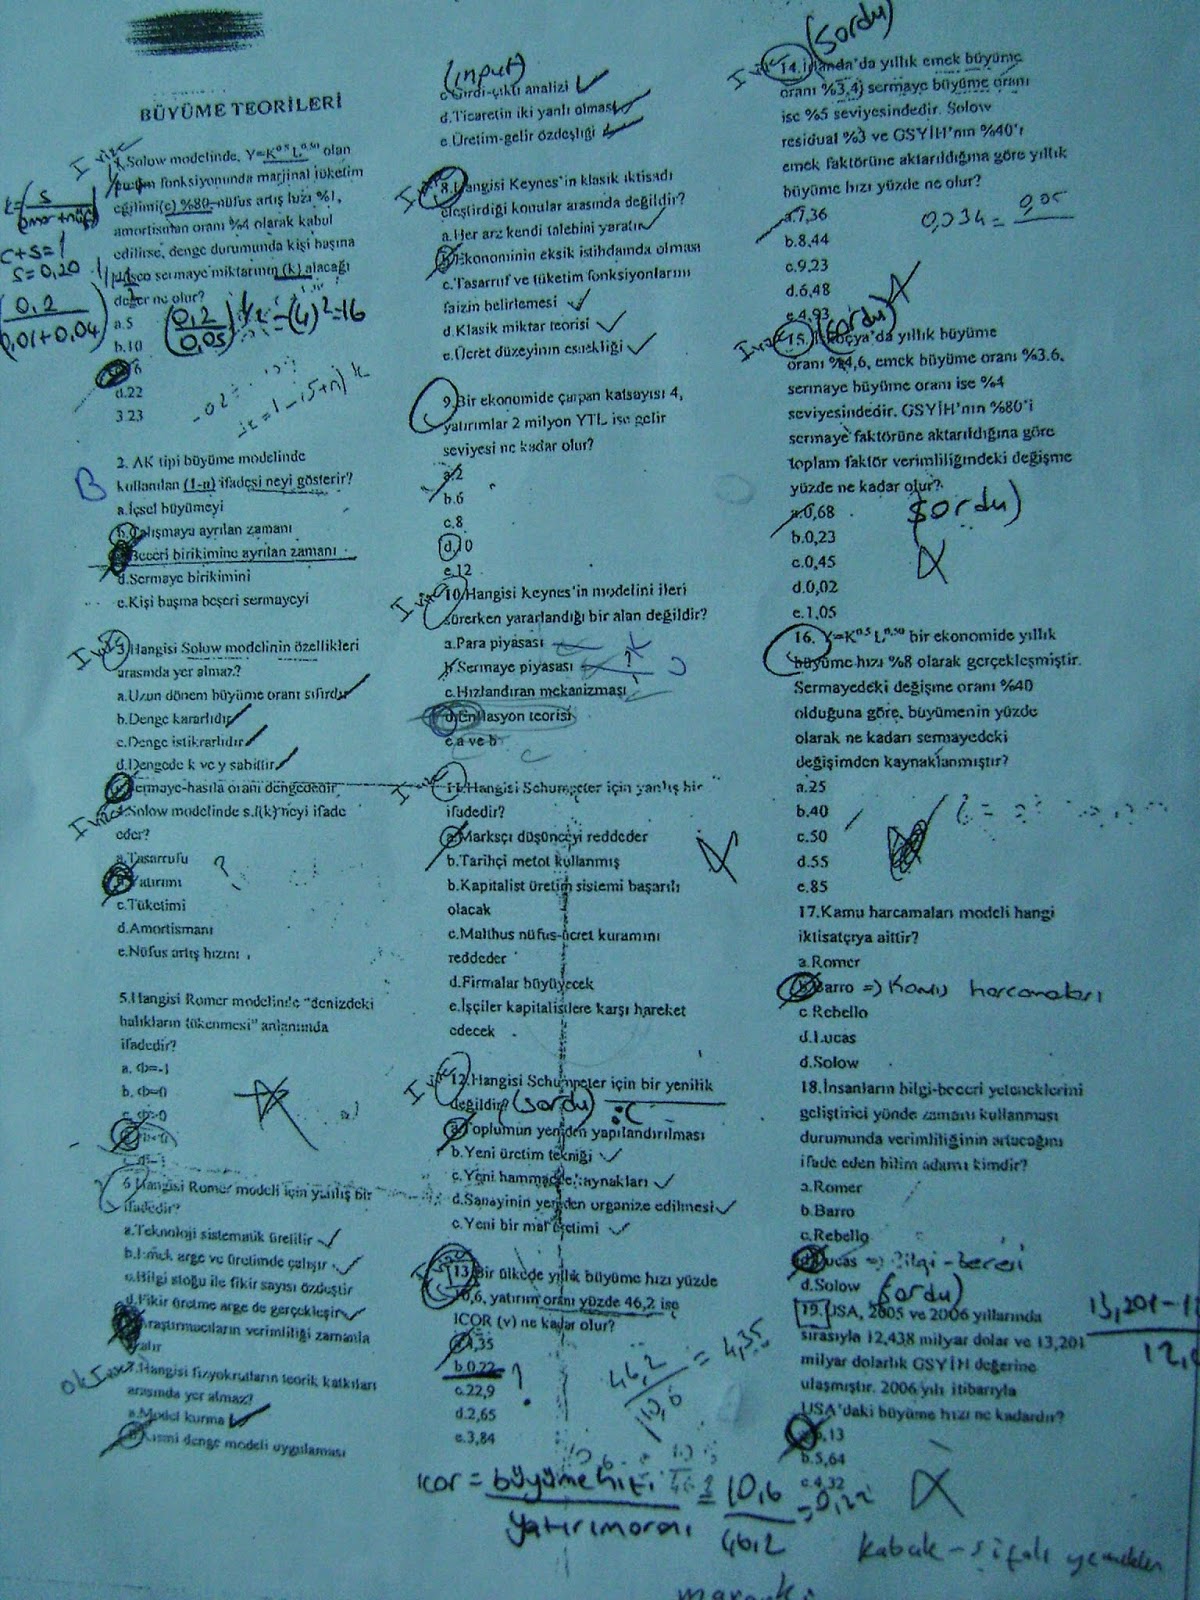 BÜYÜME TEORİLERİ
I vize
1.Solow modelinde, Y=K^0.5 L^0.50 olan
üretim fonksiyonunda marjinal tüketim
eğilimi(c) %80 nüfus artış hızı %1,
amortisman oranı %4 olarak kabul
edilirse, denge durumunda kişi başına
sermaye miktarının (k) alacağı
değer ne olur?
a.5
b.10
d.22
3.23
c+s=1
s=0,20
0,2
0,01+0,04
(0,2/0,05) =(4)²=16
B
2. AK tipi büyüme modelinde
kullanılan (1-u) ifadesi neyi gösterir?
a.İçsel büyümeyi
b.Çalışmaya ayrılan zamanı
Beceri birikimine ayrılan zamanı
d.Sermaye birikimini
e.Kişi başına beşeri sermayeyi
I vize
3.Hangisi Solow modelinin özellikleri
arasında yer almaz?
a.Uzun dönem büyüme oranı sıfırdır
b.Denge kararlıdır
c.Denge istikrarlıdır
d.Dengede k ve y sabittir
Sermaye-hasıla oranı dengededir
I vize
4.Solow modelinde s.f(k) neyi ifade
eder?
a.Tasarrufu
?
Yatırımı
c.Tüketimi
d.Amortismanı
e.Nüfus artış hızını
5.Hangisi Romer modelinde "denizdeki
balıkların tükenmesi" anlamında
ifadedir?
a. Φ=-1
b. Φ=0
6.Hangisi Romer modeli için yanlış bir
ifadedir?
a.Teknoloji sistematik üretilir
b.Emek arge ve üretimde çalışır
c.Bilgi stoğu ile fikir sayısı özdeştir
d.Fikir üretme arge de gerçekleşir
Araştırmacıların verimliliği zamanla
azalır
7.Hangisi fizyokratların teorik katkıları
arasında yer almaz?
a.Model kurma
b.Kısmi denge modeli uygulaması
(input)
c Girdi-çıktı analizi
d.Ticaretin iki yanlı olması
e.Üretim-gelir özdeşliği
I vize
8.Hangisi Keynes'in klasik iktisadı
eleştirdiği konular arasında değildir?
a.Her arz kendi talebini yaratır
b.Ekonominin eksik istihdamda olması
c.Tasarruf ve tüketim fonksiyonlarını
faizin belirlemesi
d.Klasik miktar teorisi
e.Ücret düzeyinin esnekliği
9.Bir ekonomide çarpan katsayısı 4,
yatırımlar 2 milyon YTL ise gelir
seviyesi ne kadar olur?
a.2
b.6
c.8
d.10
e.12
I vize
10.Hangisi Keynes'in modelini ileri
sürerken yararlandığı bir alan değildir?
a.Para piyasası
b.Sermaye piyasası
c.Hızlandıran mekanizması
d.Enflasyon teorisi
e.a ve b
I vize
11.Hangisi Schumpeter için yanlış bir
ifadedir?
a.Marksçı düşünceyi reddeder
b.Tarihçi metot kullanmış
b.Kapitalist üretim sistemi başarılı
olacak
c.Malthus nüfus-ücret kuramını
reddeder
d.Firmalar büyüyecek
e.İşçiler kapitalistlere karşı hareket
edecek
I vize
12.Hangisi Schumpeter için bir yenilik
değildir? (sordu) :(
a.Toplumun yeniden yapılandırılması
b.Yeni üretim tekniği
c.Yeni hammadde kaynakları
d.Sanayinin yeniden organize edilmesi
e.Yeni bir mal üretimi
I vize
13.Bir ülkede yıllık büyüme hızı yüzde
10,6, yatırım oranı yüzde 46,2 ise
ICOR (v) ne kadar olur?
a.4,35
b.0,22
c.22,9
d.2,65
e.3,84
46,2/10,6 = 4,35
ICOR = büyüme hızı / yatırım oranı = 10,6 / 46,2 = 0,22
I vize (sordu)
14.İrlanda'da yıllık emek büyüme
oranı %3,4) sermaye büyüme oranı
ise %5 seviyesindedir. Solow
residual %3 ve GSYİH'nın %40'ı
emek faktörüne aktarıldığına göre yıllık
büyüme hızı yüzde ne olur?
a.7,36
b.8,44
c.9,23
d.6,48
e.4,93
0,034 = 0,05
I vize (sordu)
15. İskoçya'da yıllık büyüme
oranı %4,6, emek büyüme oranı %3.6,
sermaye büyüme oranı ise %4
seviyesindedir. GSYİH'nın %80'i
sermaye faktörüne aktarıldığına göre
toplam faktör verimliliğindeki değişme
yüzde ne kadar olur?
(sordu)
a.0,68
b.0,23
c.0,45
d.0,02
e.1,05
16. Y=K^0.5 L^0.50 bir ekonomide yıllık
büyüme hızı %8 olarak gerçekleşmiştir.
Sermayedeki değişme oranı %40
olduğuna göre, büyümenin yüzde
olarak ne kadarı sermayedeki
değişimden kaynaklanmıştır?
a.25
b.40
c.50
d.55
e.85
17.Kamu harcamaları modeli hangi
iktisatçıya aittir?
a.Romer
b.Barro => Kamu harcamaları
c.Rebello
d.Lucas
d.Solow
18.İnsanların bilgi-beceri yeteneklerini
geliştirici yönde zamanı kullanması
durumunda verimliliğinin artacağını
ifade eden bilim adamı kimdir?
a.Romer
b.Barro
c.Rebello
d.Lucas => Bilgi-beceri
d.Solow
(sordu)
19.USA, 2005 ve 2006 yıllarında
sırasıyla 12,438 milyar dolar ve 13,201
milyar dolarlık GSYİH değerine
ulaşmıştır. 2006 yılı itibarıyla
USA'daki büyüme hızı ne kadardır?
a.6,13
b.5,64
c.4,32
kabak - şifalı yemekler
maranki